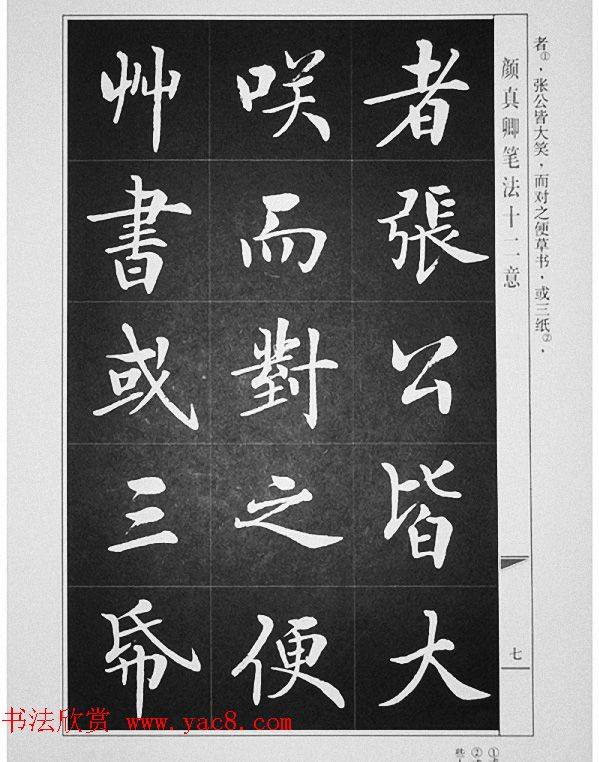 者①，张公皆大笑，而对之便草书，或三纸②，
颜真卿笔法十二意
七
者張公皆大
咲而對之便
艸書或三帋
书法欣赏 www.yac8.com
①
②